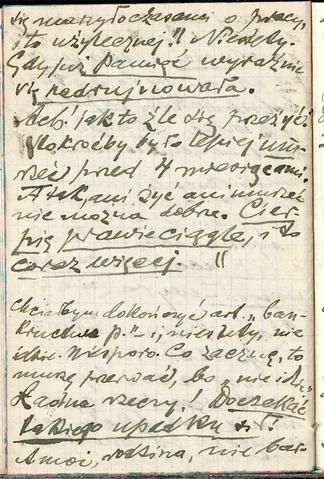 się marzyło czasami o pracy,
i to użytecznej!! Niestety.
Gdyż już pamięć wyraźnie
się nadrujnowała.
Ach! jak to źle się przeżyć!
Stokroćby było lepiej um-
rzeć przed 4 miesiącami.
A tak, ani żyć ani umrzeć
nie można dobrze. Cier-
pię prawie ciągle, i to
coraz więcej. !!
Chciałbym dokończyć art. „ban-
kructwo p." - i, niestety, nie
idzie niesporo. Co zacznę, to
muszę przerwać, bo „nie idzie"
Ładne rzeczy! Doczekać
takiego upadku
A moi, rodzina, nie bar-